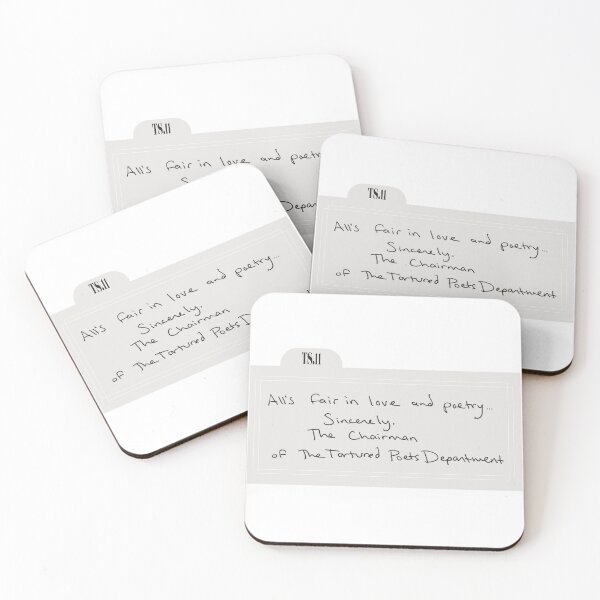 TS.11
All's fair in love and poetry
S
Depar
TS.11
All's fair in love and poetry...
Sincerely.
The Chairman
of The Tortured Poets Department
TS.11
All's fair in love and poetry...
Sincerely.
The Chairman
of The Tortured Poets D
TS.11
All's fair in love and poetry...
Sincerely.
The Chairman
of The Tortured Poets Department